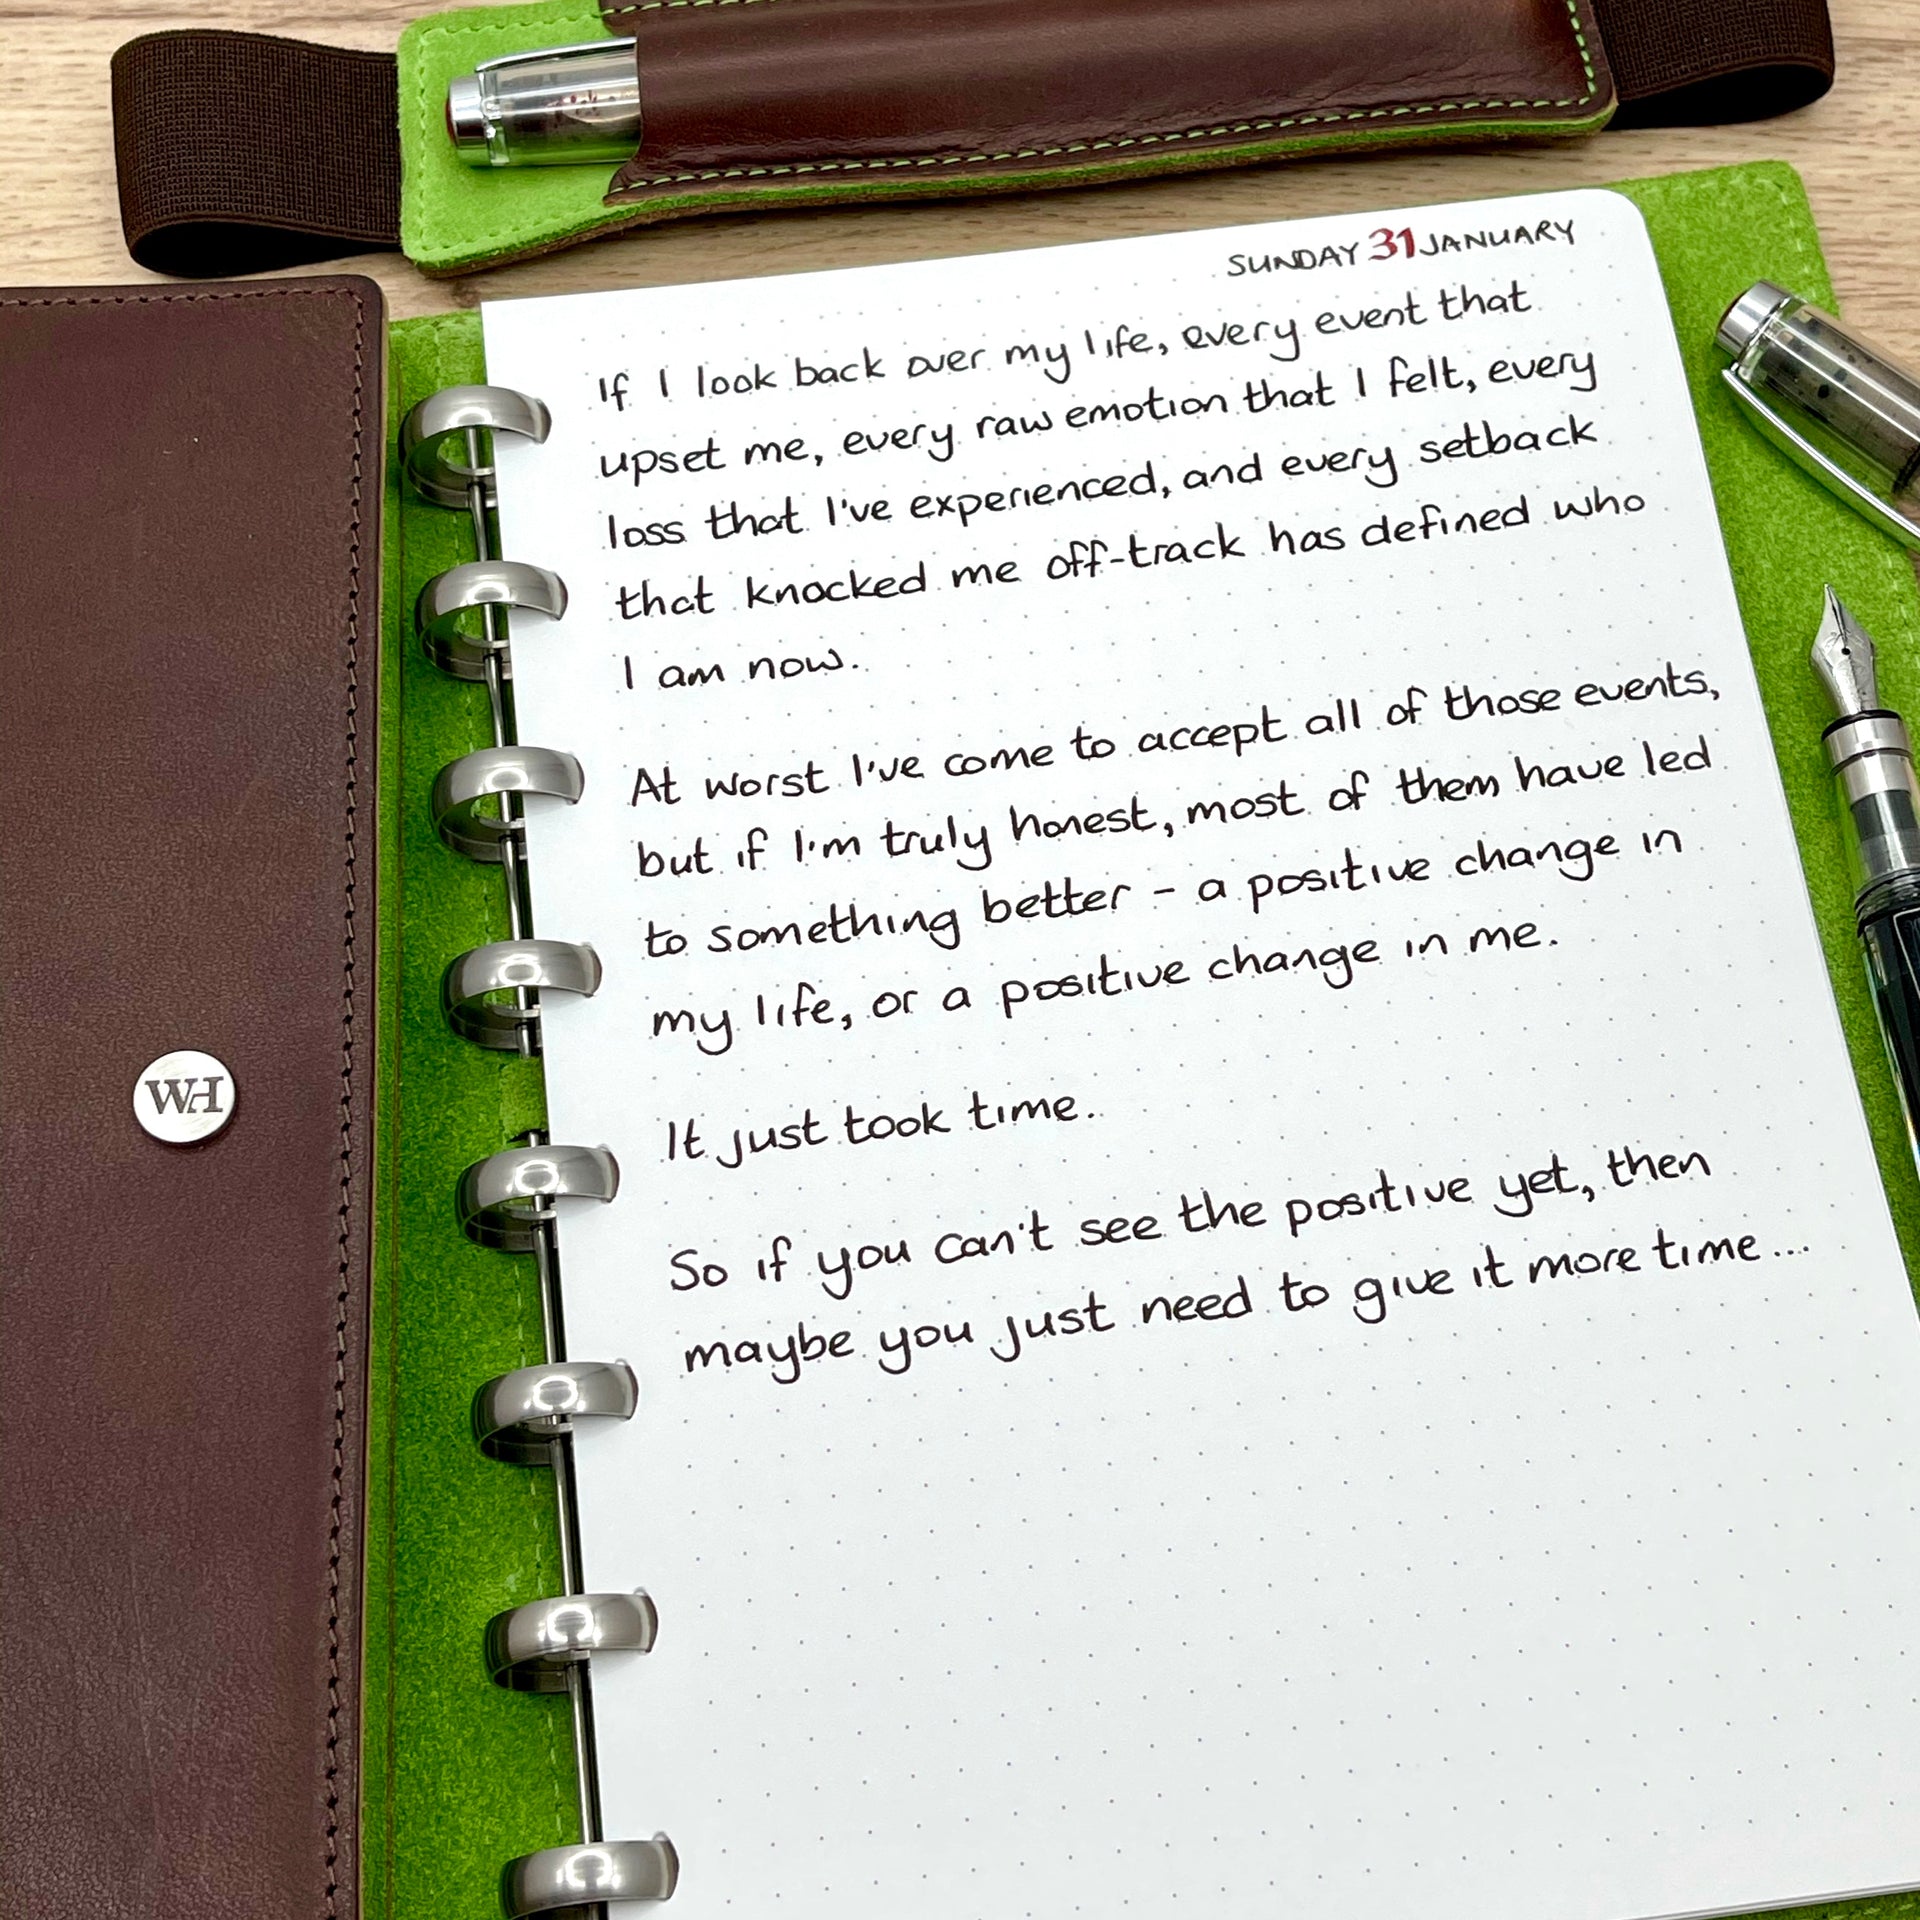 SUNDAY 31 JANUARY
If I look back over my life, every event that
upset me, every raw emotion that I felt, every
loss that I've experienced, and every setback
that knocked me off-track has defined who
I am now.
At worst I've come to accept all of those events,
but if I'm truly honest, most of them have led
to something better - a positive change in
my life, or a positive change in me.
It just took time.
So if you can't see the positive yet, then
maybe you just need to give it more time...
WH